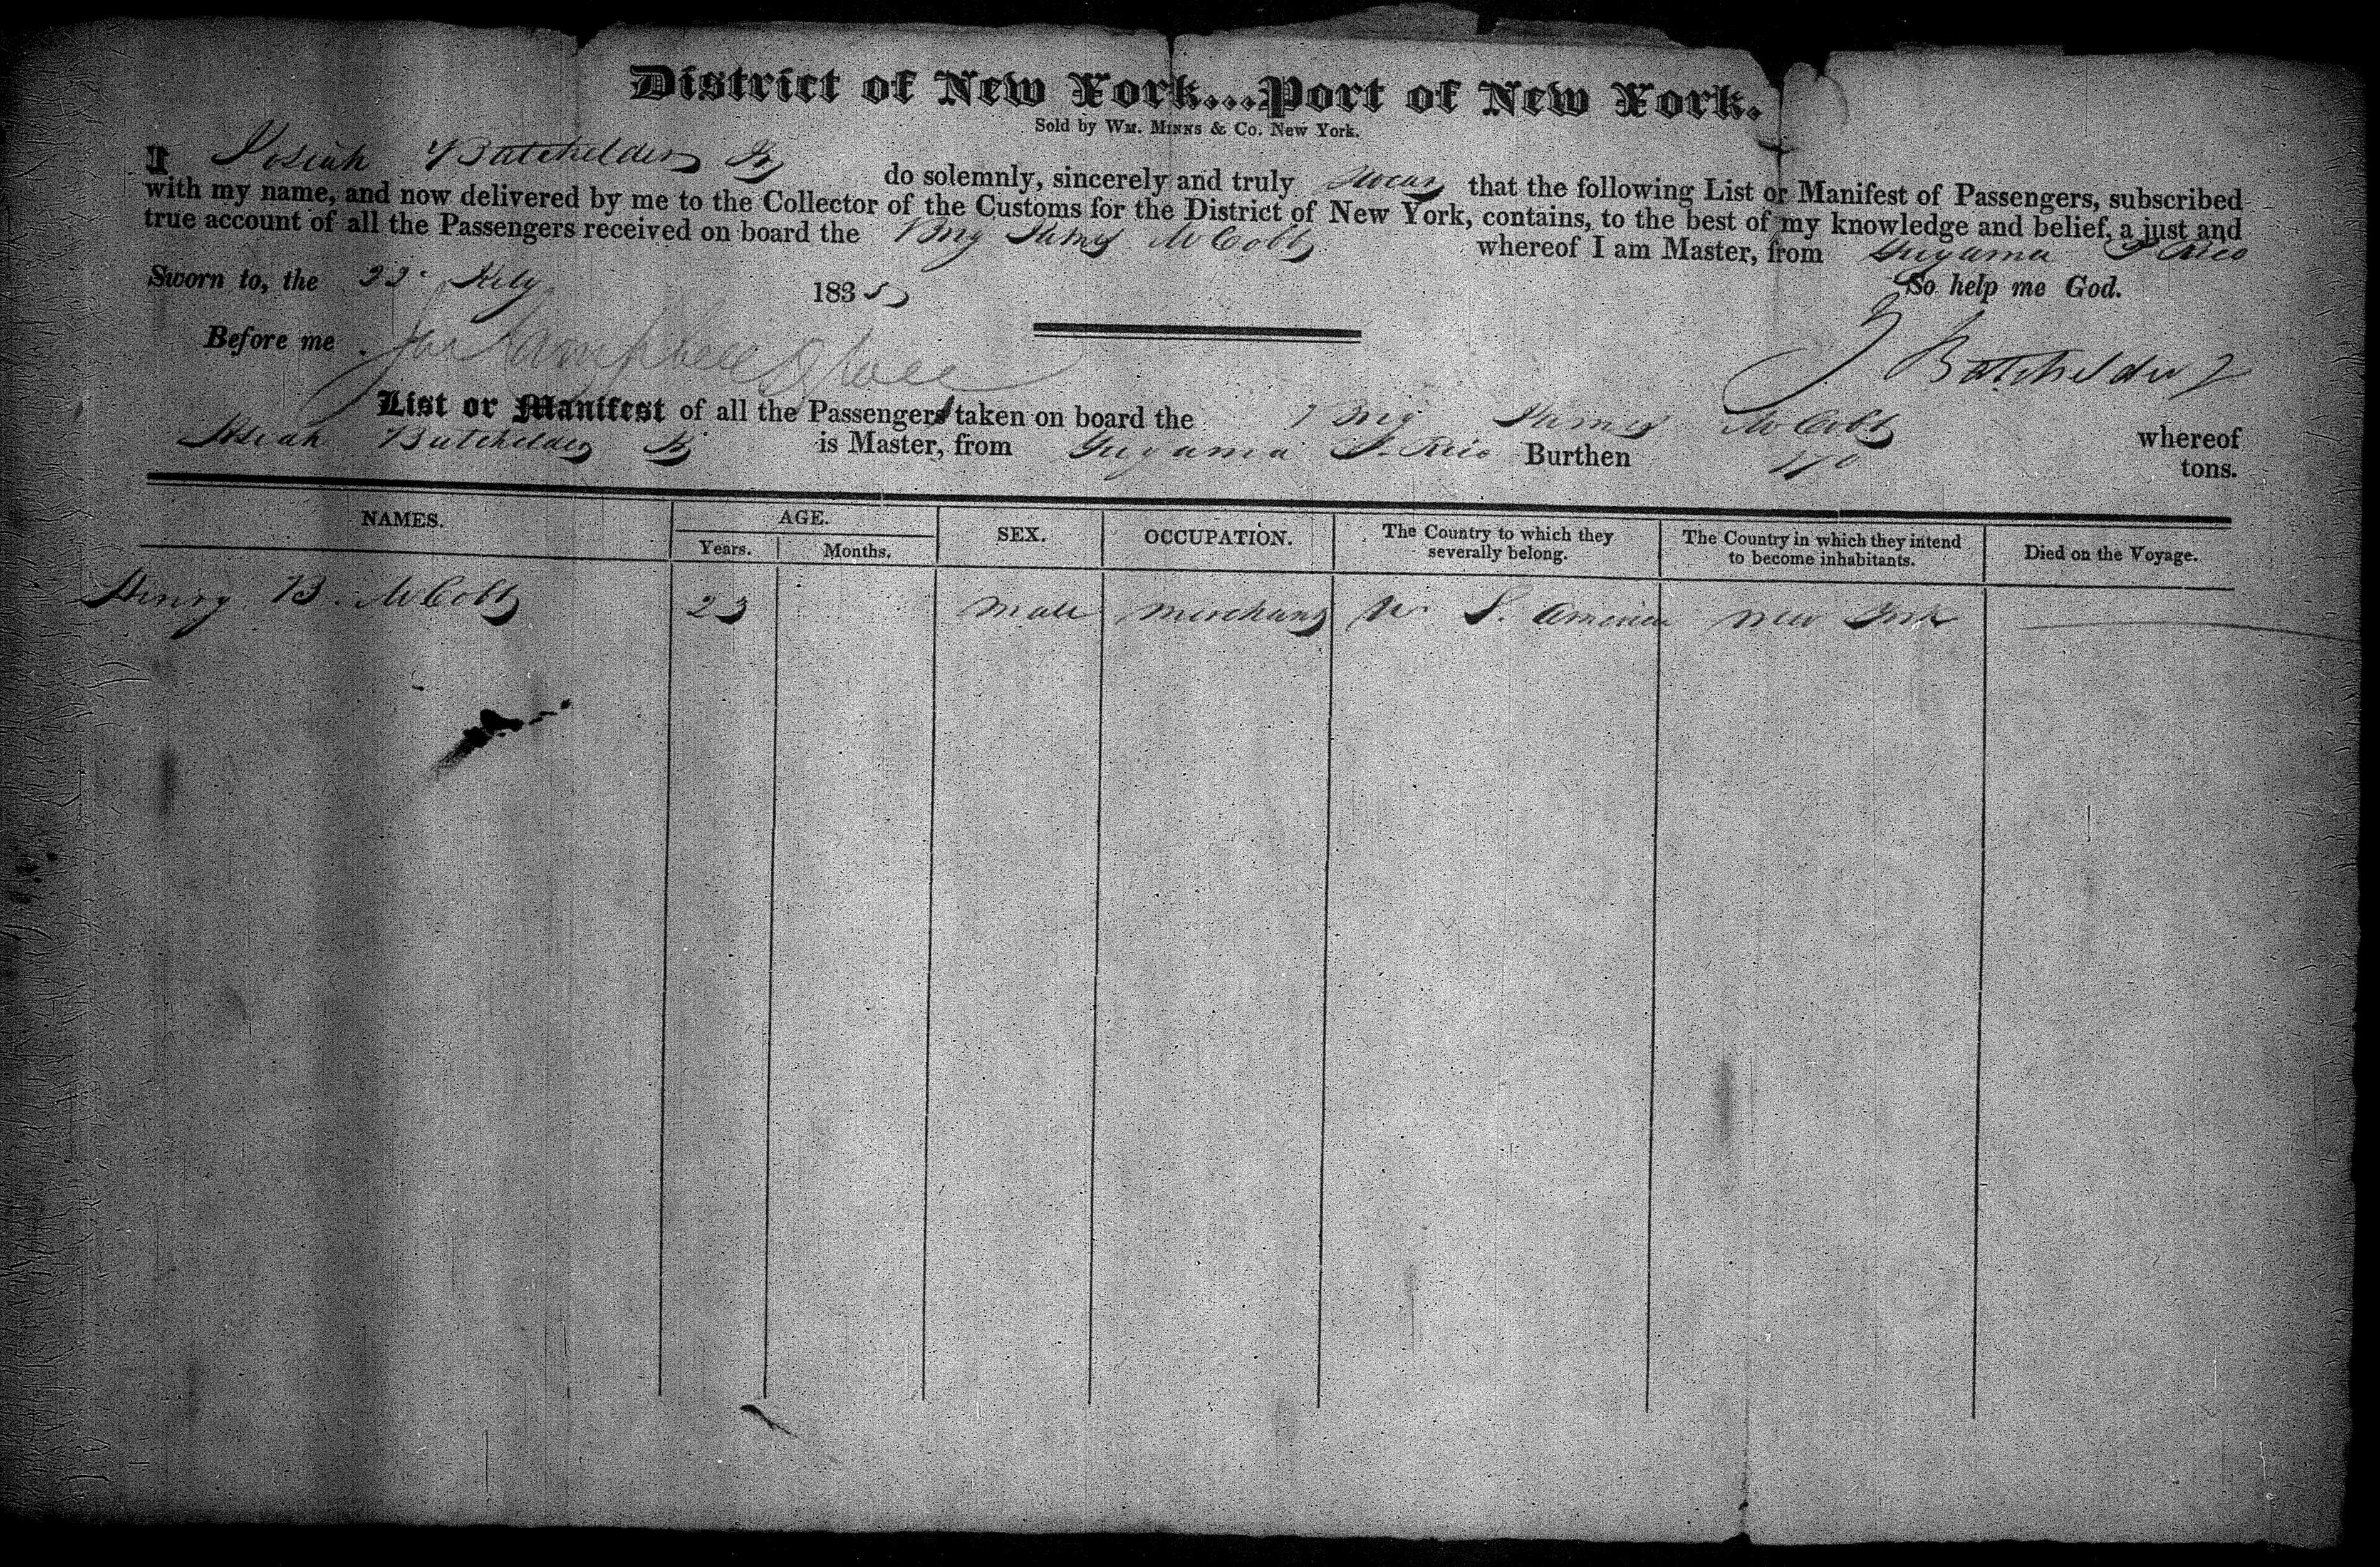 District of New York...Port of New York.
Sold by Wm. Minns & Co. New York.
I Josiah Batchelder Jr do solemnly, sincerely and truly swear that the following List or Manifest of Passengers, subscribed
with my name, and now delivered by me to the Collector of the Customs for the District of New York, contains, to the best of my knowledge and belief, a just and
true account of all the Passengers received on board the Brig James McCobb whereof I am Master, from Guyama P. Rico
Sworn to, the 22 1835 So help me God.
Before me
J Batchelder Jr
List or Manifest of all the Passengers taken on board the Brig James McCobb whereof
Josiah Batchelder Jr is Master, from Guyama P. Rico Burthen 170 tons.
NAMES. AGE. SEX. OCCUPATION. The Country to which they severally belong. The Country in which they intend to become inhabitants. Died on the Voyage.
Years. Months.
Henry B. McCobb 23 male merchant U. S. America New York